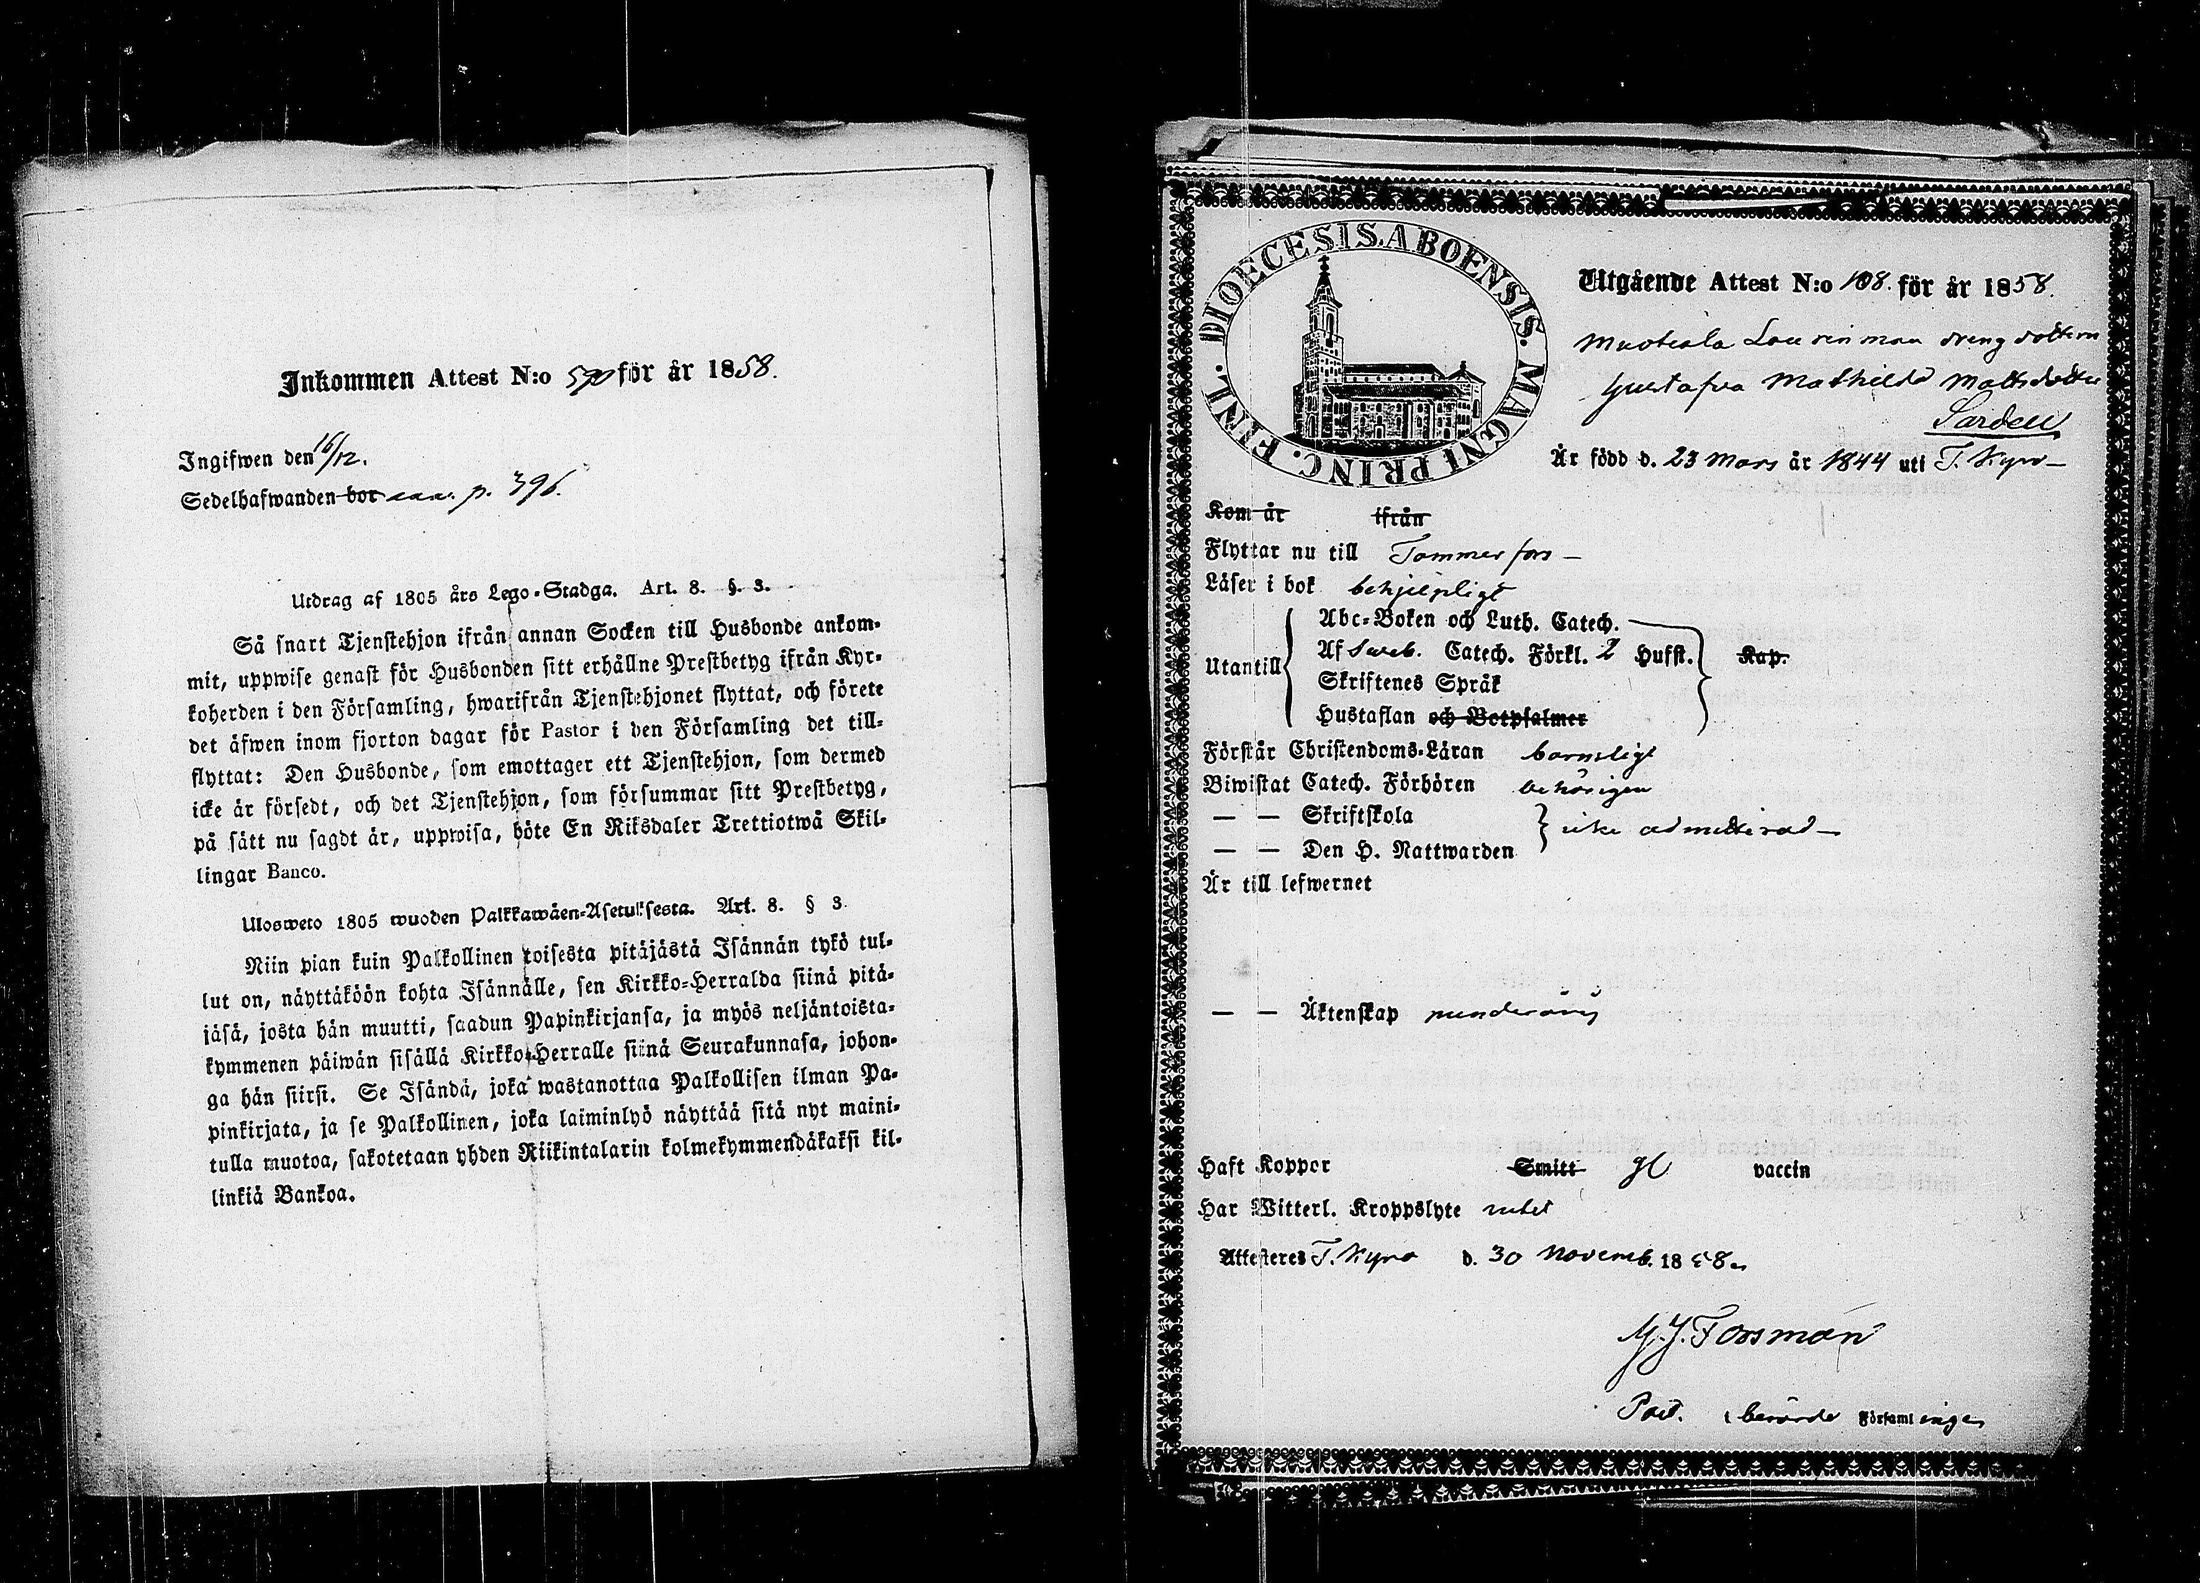 Inkommen Attest N:o 590 för år 1858.
Ingifwen den 16/12.
Sedelhafwanden bor ann. p. 396.
Utdrag af 1805 års Lego-Stadga. Art. 8. §. 3.
Så snart Tjenstehjon ifrån annan Socken till Husbonde ankom-
mit, uppwise genast för Husbonden sitt erhållne Prestbetyg ifrån Kyr-
koherden i den Församling, hwarifrån Tjenstehjonet flyttat, och förete
det äfwen inom fjorton dagar för Pastor i den Församling det till-
flyttat: Den Husbonde, som emottager ett Tjenstehjon, som dermed
icke är försedt, och det Tjenstehjon, som försummar sitt Prestbetyg,
på sätt nu sagdt är, uppwisa, böte En Riksdaler Trettiotwå Skil-
lingar Banco.
Ulosweto 1805 wuoden Palkkawäen-Asetuksesta. Art. 8. § 3.
Niin pian kuin Palkollinen toisesta pitäjästä Isännän tykö tul-
lut on, näyttäköön kohta Isännälle, sen Kirkko-Herralda siinä pitä-
jäsä, josta hän muutti, saadun Papinkirjansa, ja myös neljäntoista-
kymmenen päiwän sisällä Kirkko-Herralle siinä Seurakunnasa, johon-
ga hän siirsi. Se Isändä, joka wastanottaa Palkollisen ilman Pa-
pinkirjata, ja se Palkollinen, joka laiminlyö näyttää sitä nyt maini-
tulla muotoa, sakotetaan yhden Riikintalarin kolmekymmendäkaksi kil-
linkiä Bankoa.
DIOECESIS. ABOENSIS. MAGNI PRINC. FINL.
Utgående Attest N:o 108. för år 1858.
Laurinman drengdottern
Gustafva Mathilda Mattsdotter
Sardell
Är född d. 23 Mars år 1844 uti T. Kyro
Kom år ifrån
Flyttar nu till Tammerfors
Läser i bok behjelpligt
Utantill
Abc-Boken och Luth. Catech.
Af Sweb. Catech. Förkl. 2 Hufst. Kap.
Skriftenes Språk
Hustaflan och Botpsalmer
Förstår Christendoms-Läran barnsligt
Biwistat Catech. Förhören behörigen
— — Skriftskola
— — Den H. Nattwarden
icke admitterad
Är till lefwernet
— — Äktenskap minderårig
Haft Koppor Smitt gl vaccin
Har Witterl. Kroppslyte intet
Attesteres T. Kyro d. 30 Novemb. 1858.
M. J. Forsman
Past. i berörde Församlingen